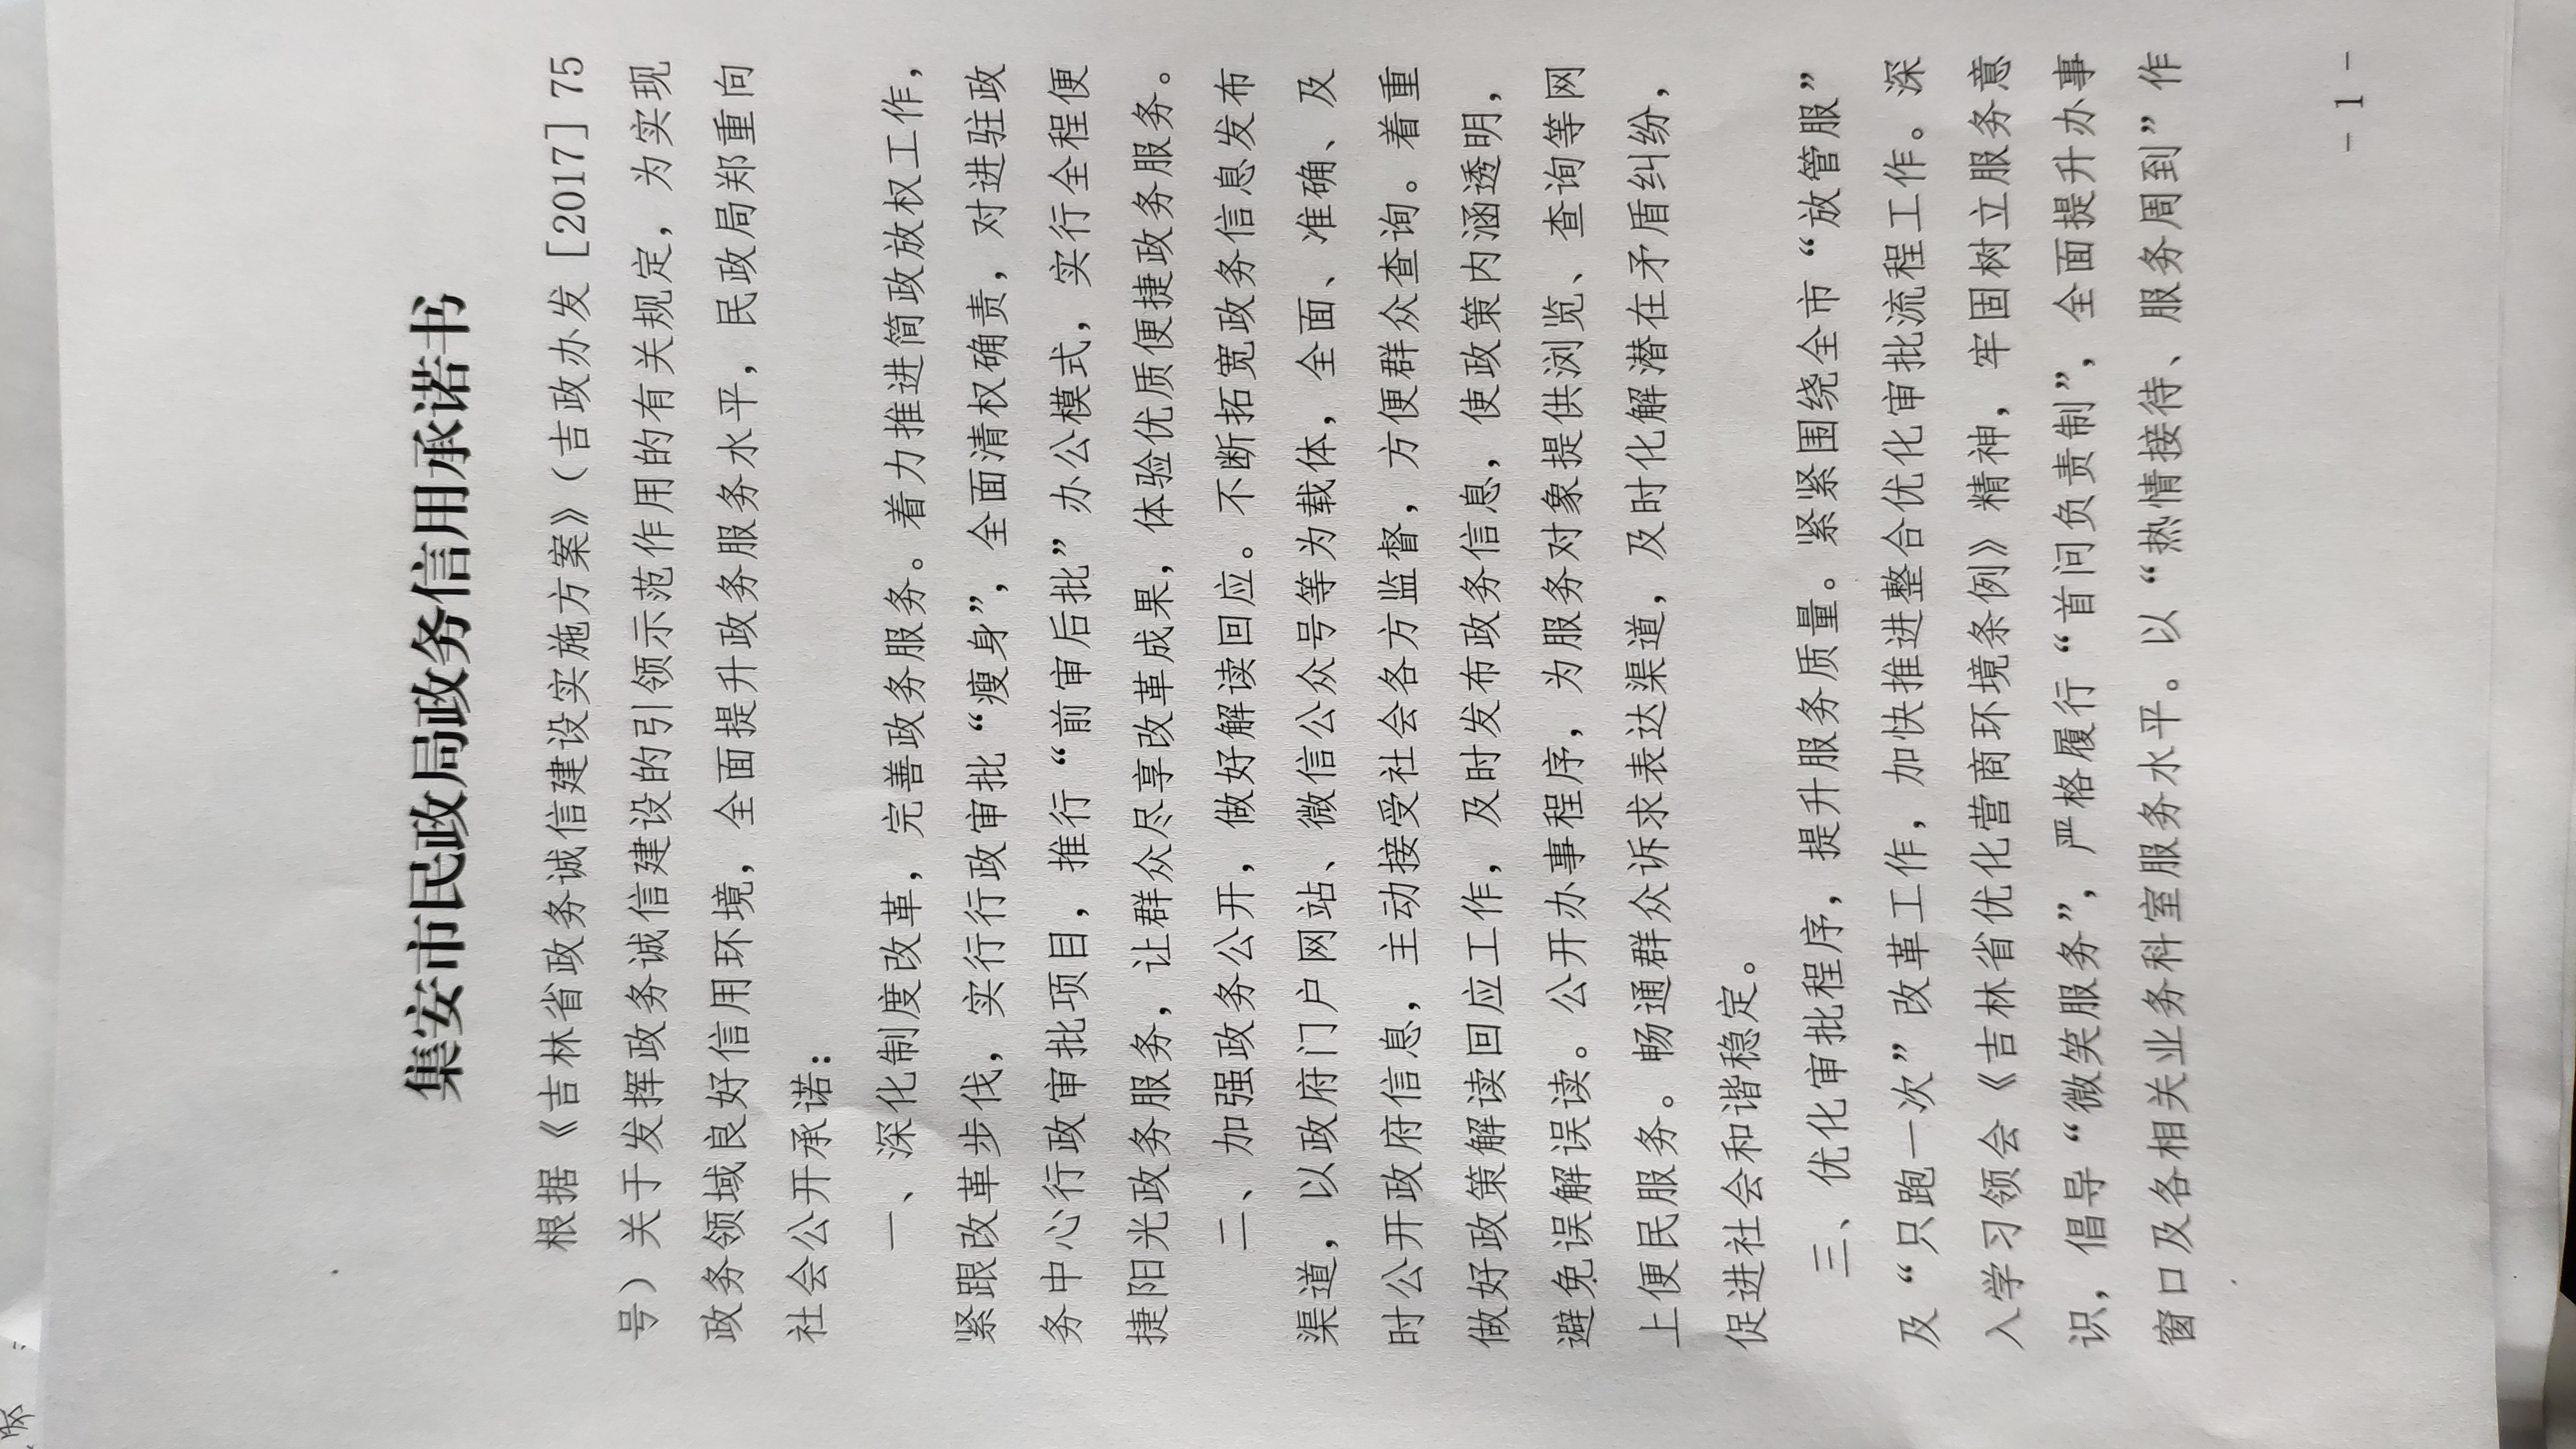 集安市民政局政务信用承诺书
根据《吉林省政务诚信建设实施方案》（吉政办发［2017］75
号）关于发挥政务诚信建设的引领示范作用的有关规定，为实现
政务领域良好信用环境，全面提升政务服务水平，民政局郑重向
社会公开承诺：
一、深化制度改革，完善政务服务。着力推进简政放权工作，
紧跟改革步伐，实行行政审批“瘦身”，全面清权确责，对进驻政
务中心行政审批项目，推行“前审后批”办公模式，实行全程便
捷阳光政务服务，让群众尽享改革成果，体验优质便捷政务服务。
二、加强政务公开，做好解读回应。不断拓宽政务信息发布
渠道，以政府门户网站、微信公众号等为载体，全面、准确、及
时公开政府信息，主动接受社会各方监督，方便群众查询。着重
做好政策解读回应工作，及时发布政务信息，使政策内涵透明，
避免误解误读。公开办事程序，为服务对象提供浏览、查询等网
上便民服务。畅通群众诉求表达渠道，及时化解潜在矛盾纠纷，
促进社会和谐稳定。
三、优化审批程序，提升服务质量。紧紧围绕全市“放管服”
及“只跑一次”改革工作，加快推进整合优化审批流程工作。深
入学习领会《吉林省优化营商环境条例》精神，牢固树立服务意
识，倡导“微笑服务”，严格履行“首问负责制”，全面提升办事
窗口及各相关业务科室服务水平。以“热情接待、服务周到”作
- 1 -